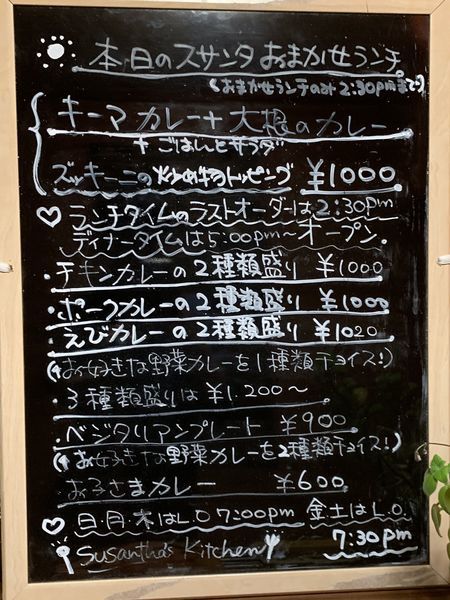 本日のスサンタおまかせランチ
(おまかせランチのみ2:30pmまで)
キーマカレー+大根のカレー
+ごはんとサラダ
ズッキーニの炒め物のトッピング ¥1000
♡ランチタイムのラストオーダーは2:30pm
ディナータイムは5:00pm〜オープン。
・チキンカレーの2種類盛り ¥1000
・ポークカレーの2種類盛り ¥1000
えびカレーの2種類盛り ¥1020
(↑お好きな野菜カレーを1種類チョイス!)
・3種類盛りは¥1.200〜
・ベジタリアンプレート ¥900
(↑お好きな野菜カレーを2種類チョイス!)
お子さまカレー ¥600
♡日.月.木はL.O 7:00pm 金土はL.O.
7:30pm
Susantha's Kitchen